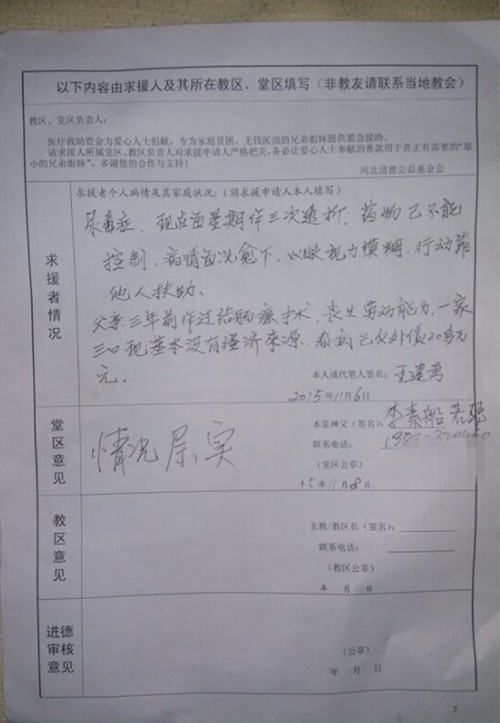 以下内容由求援人及其所在教区、堂区填写（非教友请联系当地教会）
教区、堂区负责人：
医疗救助资金为爱心人士捐献，专为家庭贫困、无钱医治的兄弟姐妹提供紧急援助。
请求援人所属堂区、教区负责人对求援申请人严格把关，务必让爱心人士奉献的善款用于真正有需要的“最
小的兄弟姐妹”，多谢您的合作与支持！
河北进德公益基金会
求援者情况
求援者个人病情及其家庭状况：（须求援申请人本人填写）
尿毒症，现在每星期作三次透析，药物已不能
控制，病情每况愈下，双眼视力模糊，行动靠
他人扶助。
父亲三年前作过结肠癌手术，丧失劳动能力，一家
三口现基本没有经济来源，看病已欠外债20多万
元。
本人或代笔人签名：王建勇
2015年11月6日
堂区意见
情况属实
本堂神父（签名）：李素船
联系电话：
（堂区公章）
15年11月8日
教区意见
主教/教区长（签名）：
联系电话：
（教区公章）
年 月 日
进德审核意见
（公章）
年 月 日
2